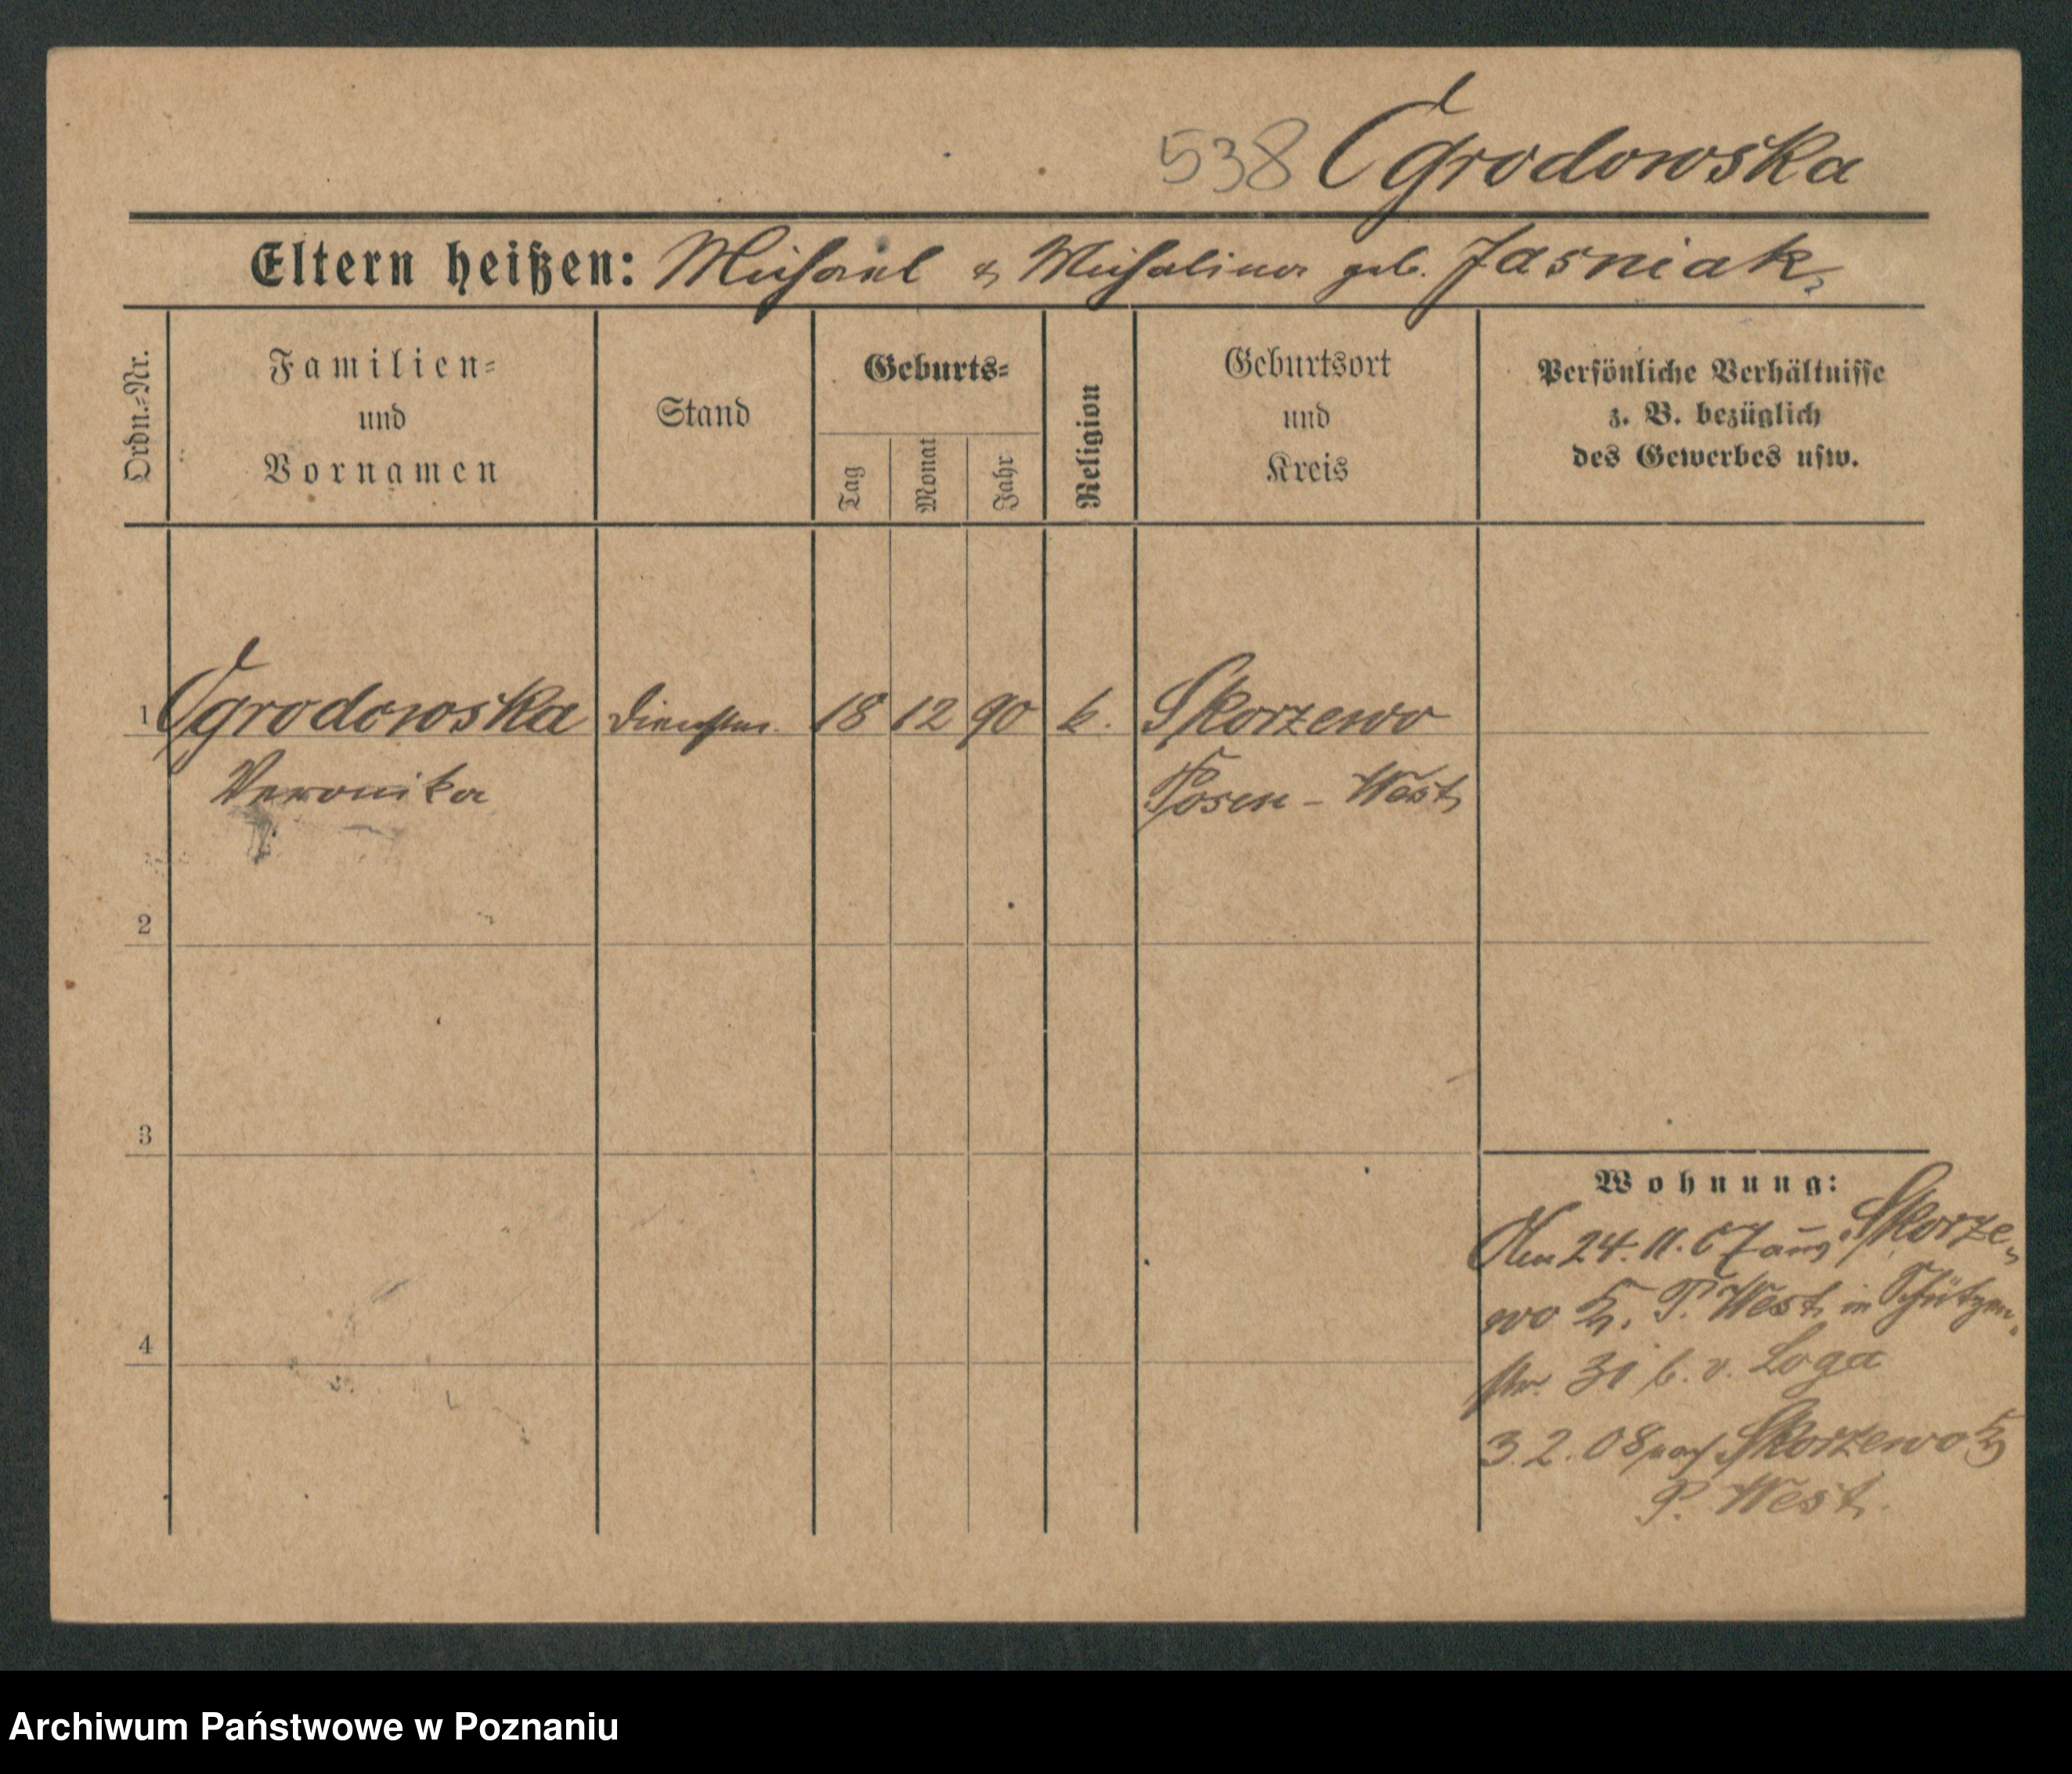 538 Ogrodowska
Eltern heißen: Michael & Michalina geb. Jasniak
Ordn.-Nr.
Familien-
und
Vornamen
Stand
Geburts-
Tag
Monat
Jahr
Religion
Geburtsort
und
Kreis
Persönliche Verhältnisse
z. B. bezüglich
des Gewerbes usw.
1 Ogrodowska Dienstm. 18 12 90 k. Skorzewo
Veronika Posen - West
2
3
4
Wohnung:
24.11.07 aus Skorze-
wo Kr. P. West in Schützen-
str. 31 b. v. Loga
3.2.08 nach Skorzewo Kr
P. West.
Archiwum Państwowe w Poznaniu